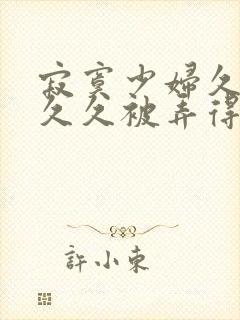 寂寞少婦久
久久被弄得
許小東